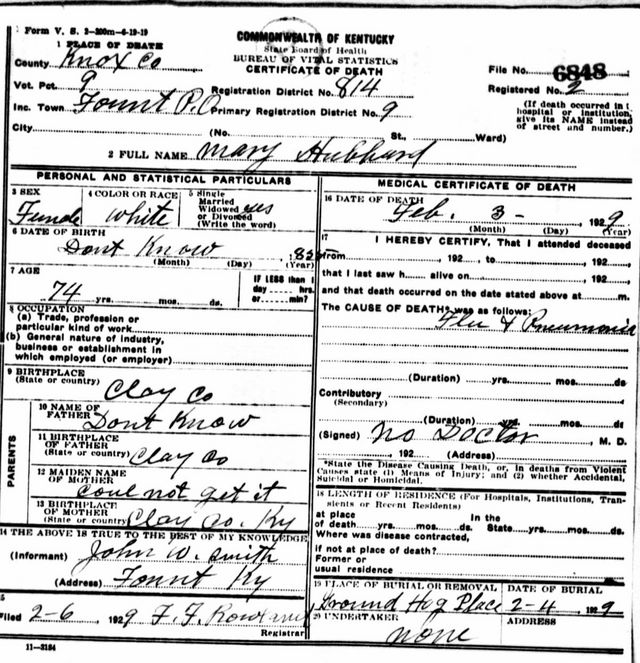 Form V. S. 2-300m-6-19-19
COMMONWEALTH OF KENTUCKY
State Board of Health
BUREAU OF VITAL STATISTICS
CERTIFICATE OF DEATH
1 PLACE OF DEATH
County Knox Co
File No. 6848
Vot. Pct. 9 Registration District No. 814 Registered No. 2
Inc. Town Fount P.O Primary Registration District No. 9
(If death occurred in
hospital or institution,
give its NAME instead
of street and number.)
City (No. St., Ward)
2 FULL NAME Mary Hubbard
PERSONAL AND STATISTICAL PARTICULARS
3 SEX Female
4 COLOR OR RACE White
5 Single
Married
Widowed yes
or Divorced
(Write the word)
6 DATE OF BIRTH
Dont Know
(Month) (Day) (Year)
7 AGE
74 yrs. mos. ds.
IF LESS than 1
day hrs.
or min?
8 OCCUPATION
(a) Trade, profession or
particular kind of work
(b) General nature of industry,
business or establishment in
which employed (or employer)
9 BIRTHPLACE
(State or country)
Clay Co
PARENTS
10 NAME OF
FATHER Dont Know
11 BIRTHPLACE
OF FATHER
(State or country) Clay Co
12 MAIDEN NAME
OF MOTHER
Coul not get it
13 BIRTHPLACE
OF MOTHER
(State or country) Clay Co. Ky
14 THE ABOVE IS TRUE TO THE BEST OF MY KNOWLEDGE
(Informant) John W. Smith
(Address) Fount Ky
Filed 2-6 1929
Registrar
11-3184
MEDICAL CERTIFICATE OF DEATH
16 DATE OF DEATH
Feb. 3 - , 1929
(Month) (Day) (Year)
17
I HEREBY CERTIFY, That I attended deceased
from , 192 to , 192
that I last saw h alive on , 192
and that death occurred on the date stated above at m.
The CAUSE OF DEATH* was as follows:
Flu & Pneumonia
(Duration) yrs. mos. ds
Contributory
(Secondary)
(Duration) yrs. mos. ds
(Signed) No Doctor , M. D.
, 192 (Address)
*State the Disease Causing Death, or, in deaths from Violent
Causes state (1) Means of Injury; and (2) whether Accidental,
Suicidal or Homicidal.
18 LENGTH OF RESIDENCE (For Hospitals, Institutions, Tran-
sients or Recent Residents)
at place In the
of death yrs. mos. ds. State yrs. mos. ds.
Where was disease contracted,
if not at place of death?
Former or
usual residence
19 PLACE OF BURIAL OR REMOVAL
Ground Hog Place
DATE OF BURIAL
2-4 1929
20 UNDERTAKER
none
ADDRESS